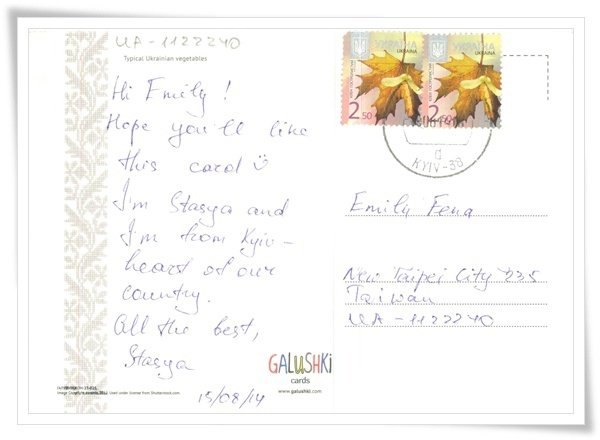 UA-1122240
Typical Ukrainian vegetables
Hi Emily!
Hope you'll like
this card
I'm Stasya and
I'm from Kyiv -
heart of our
country.
All the best,
Stasya
15/08/14
UKRAINA
2.50
UKRAINA
2.50
KYIV-38
Emily Fena
New Taipei City 235
Taiwan
UA-1122240
GALUSHKi
cards
www.galushki.com
Used under license from Shutterstock.com